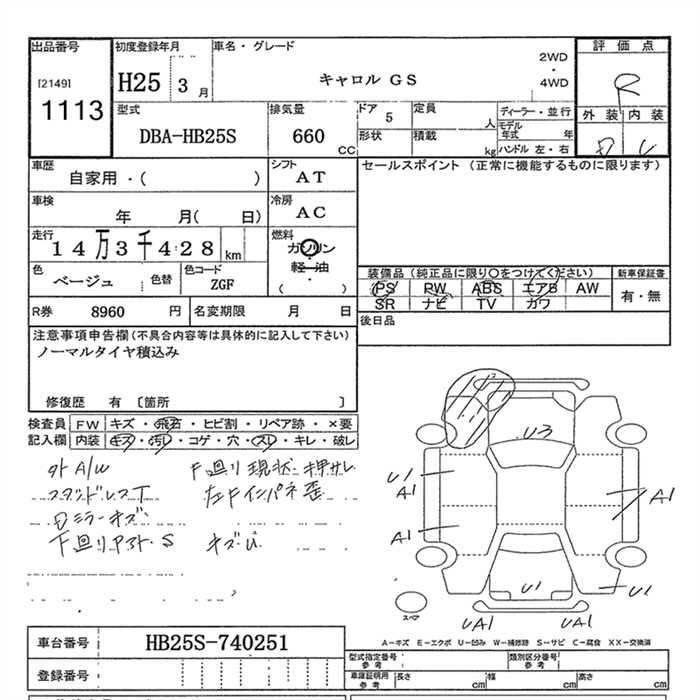 出品番号 初度登録年月 車名・グレード 評価点
[2149] 1113 H25 3月 キャロル GS 2WD・4WD R
型式 排気量 ドア 5 定員 人 ディーラー・並行 外装 内装
DBA-HB25S 660 CC 形状 積載 kg モデル年式 年 ハンドル 左・右
車歴 シフト セールスポイント (正常に機能するものに限ります)
自家用・( ) AT
車検 冷房
年 月( 日) AC
走行 燃料
14万3千428 km ガソリン・軽油
色 色替 色コード ( )
ベージュ ZGF
装備品 (純正品に限り○をつけてください) 新車保証書
PS PW ABS エアB AW 有・無
SR ナビ TV カワ
R券 8960 円 名変期限 月 日 後日品
注意事項申告欄 (不具合内容等は具体的に記入して下さい)
ノーマルタイヤ積込み
修復歴 有 〔箇所 〕
検査員 FW キズ・飛石・ヒビ割・リペア跡・×要
記入欄 内装 キズ・汚れ・コゲ・穴・スレ・キレ・破レ
外A/W 下廻り現状 押サレ
スタッドレスT 左Fインパネ歪
ミラーキズ
下廻り S キズU
U3
U1
A1
A1
A1
U1
U1
スペア
UA1 UA1
A-キズ E-エクボ U-凹み W-補修跡 S-サビ C-腐食 XX-交換済
車台番号 HB25S-740251
型式指定番号 参考 類別区分番号 参考
登録番号 車庫証明用 参考 長さ cm 幅 cm 高さ cm